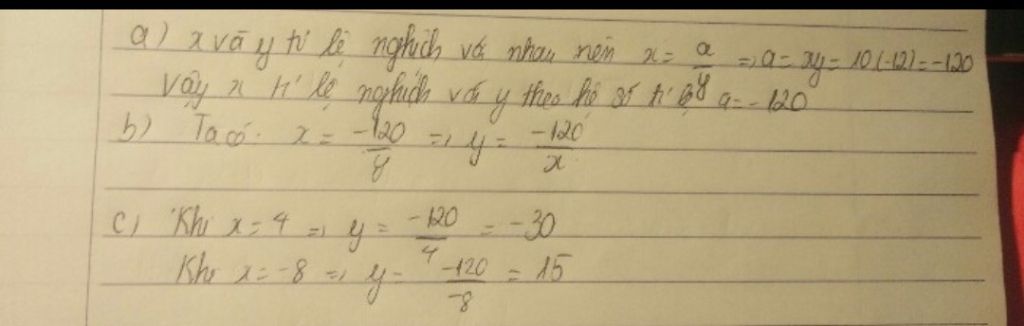 a) x và y tỉ lệ nghịch với nhau nên x = a/y => a = xy = 10(-12) = -120
Vậy x tỉ lệ nghịch với y theo hệ số tỉ lệ a = -120
b) Ta có: x = -120/y => y = -120/x
c) Khi x = 4 => y = -120/4 = -30
Khi x = -8 => y = -120/-8 = 15